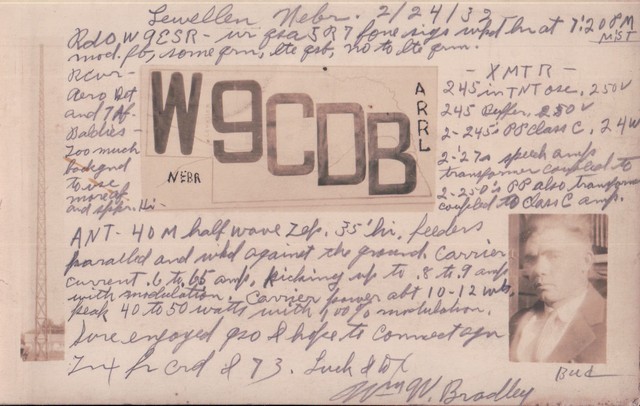 Lewellen, Nebr. 2/24/32
Rdo W9ESR - ur qsa 5 R7 fone sigs wkd hr at 7:20 PM
MST
mod. fb, some qrm, lte qsb, no to lte qrn.
Rcvr -
Aero Det
and 1 AF.
Baldies -
Too much
backgnd
to use
more af
and spkr. Hi -
W9CDB
NEBR
ARRL
- XMTR -
245 in TNT osc, 250 V
245 Buffer, 250 V
2 - 245's PP Class C, 24 W
2 - '27s speech amp
transformer coupled to
2 - 250's PP also transformer
coupled to Class C amp.
ANT - 40 M half wave Zep. 35' hi, feeders
paralled and wkd against the ground. Carrier
current .6 to .65 amp, kicking up to .8 to .9 amp
with modulation. Carrier power abt 10-12 wtts,
peak 40 to 50 watts with 100% modulation.
Sure enjoyed qso & hope to connect agn
Tnx fr crd & 73. Luck & DX
Wm W. Bradley
Bud